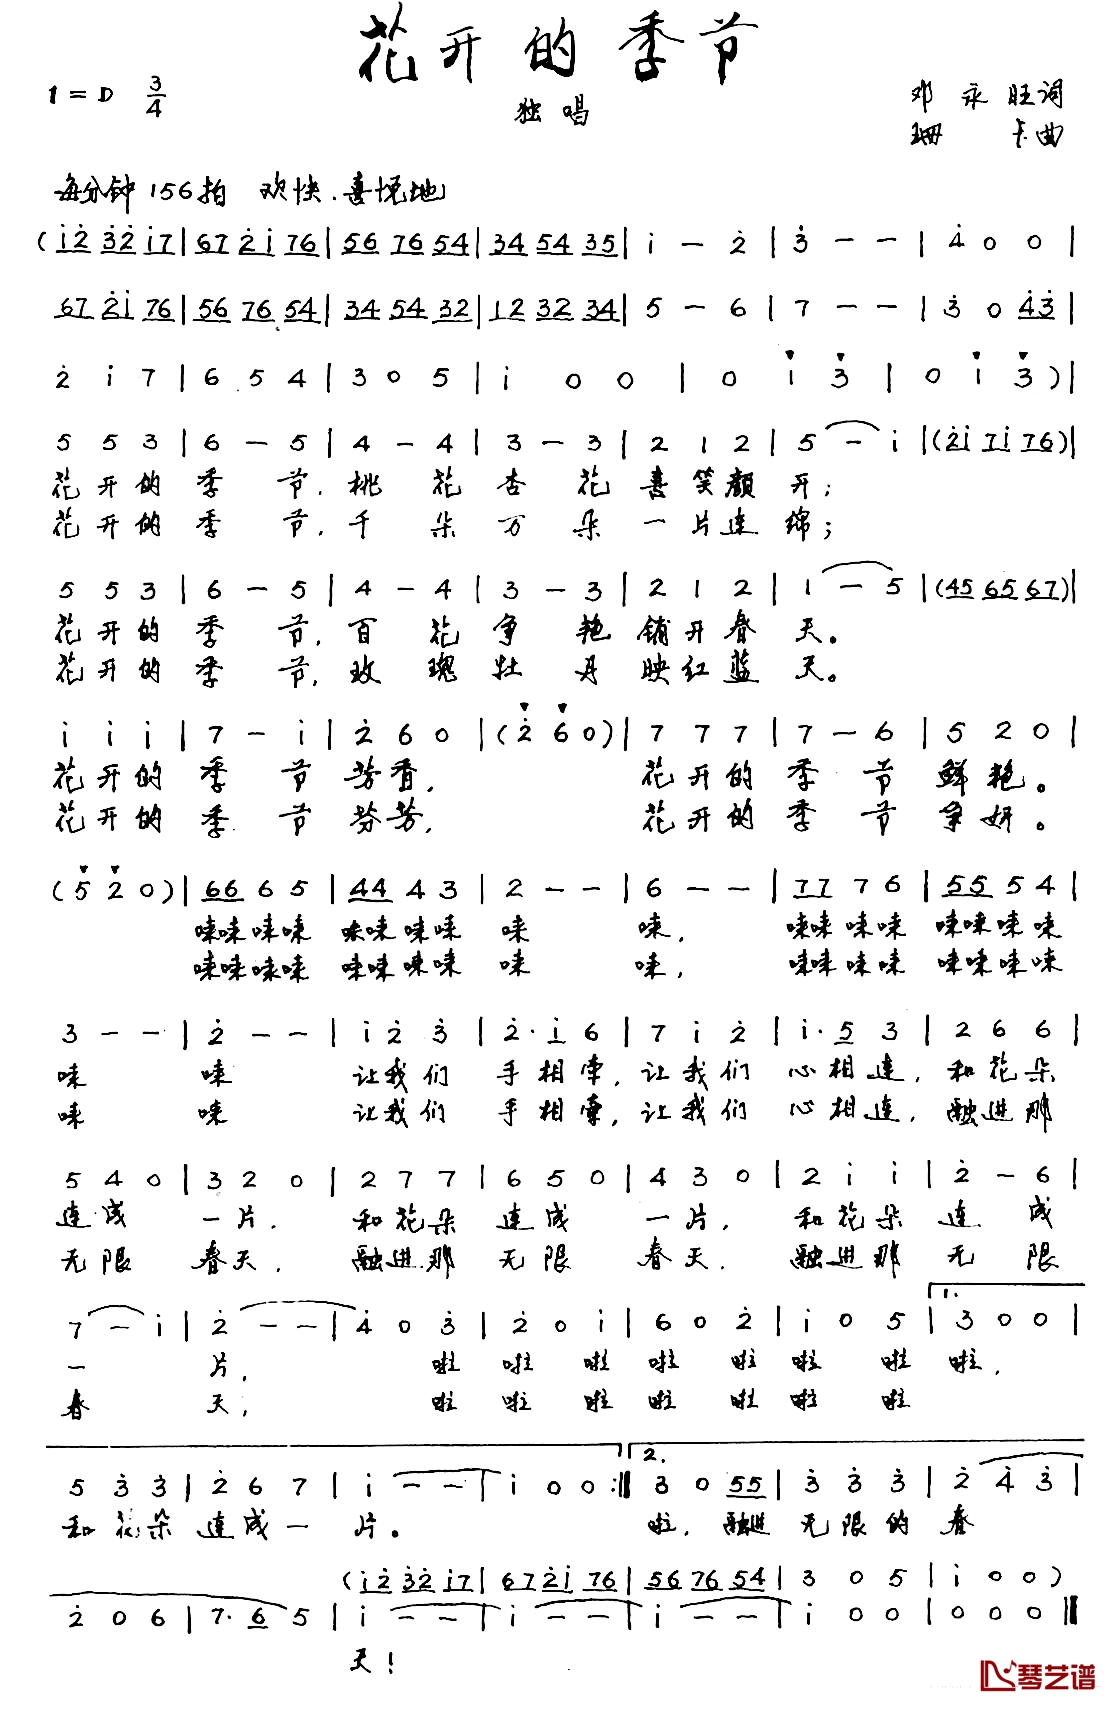 花开的季节
独唱
1=D 3/4
邓永旺词
珊卡曲
每分钟156拍 欢快.喜悦地
(i̇2̇ 3̇2̇ i̇7|67 2̇i̇ 76|56 76 54|34 54 35|i̇ – 2̇|3̇ – –|4̇ 0 0|
67 2̇i̇ 76|56 76 54|34 54 32|12 32 34|5 – 6|7 – –|3̇ 0 4̇3̇|
2̇ i̇ 7|6 5 4|3 0 5|i̇ 0 0|0 i̇ 3̇|0 i̇ 3̇)|
5 5 3|6 – 5|4 – 4|3 – 3|2 1 2|5 – i̇|(2̇i̇ 7i̇ 76)|
花开的季节,桃花杏花喜笑颜开;
花开的季节,千朵万朵一片连绵;
5 5 3|6 – 5|4 – 4|3 – 3|2 1 2|1 – 5|(45 65 67)|
花开的季节,百花争艳铺开春天。
花开的季节,玫瑰牡丹映红蓝天。
i̇ i̇ i̇|7 – i̇|2̇ 6 0|(2̇ 6 0)|7 7 7|7 – 6|5 2 0|
花开的季节芳香, 花开的季节鲜艳。
花开的季节芬芳, 花开的季节争妍。
(5 2 0)|66 6 5|44 4 3|2 – –|6 – –|77 7 6|55 5 4|
唻唻唻唻 唻唻唻唻 唻 唻, 唻唻唻唻 唻唻唻唻
唻唻唻唻 唻唻唻唻 唻 唻, 唻唻唻唻 唻唻唻唻
3 – –|2̇ – –|i̇ 2̇ 3̇|2̇· i̇ 6|7 i̇ 2̇|i̇· 5 3|2 6 6|
唻 唻 让我们 手相牵,让我们 心相连,和花朵
唻 唻 让我们 手相牵,让我们 心相连,融进那
5 4 0|3 2 0|2 7 7|6 5 0|4 3 0|2 i̇ i̇|2̇ – 6|
连成 一片, 和花朵 连成 一片, 和花朵 连成
无限 春天, 融进那 无限 春天, 融进那 无限
7 – i̇|2̇ – –|4̇ 0 3̇|2̇ 0 i̇|6 0 2̇|i̇ 0 5|1. 3 0 0|
一 片, 啦 啦 啦 啦 啦 啦 啦 啦,
春 天, 啦 啦 啦 啦 啦 啦 啦
5 3̇ 3̇|2̇ 6 7|i̇ – –|i̇ 0 0:‖2. 3̇ 0 55|3̇ 3̇ 3̇|2̇ 4̇ 3̇|
和花朵 连成一 片。 啦,融进 无限的 春
(i̇2̇ 3̇2̇ i̇7|67 2̇i̇ 76|56 76 54|3 0 5|i̇ 0 0)
2̇ 0 6|7· 6 5|i̇ – –|i̇ – –|i̇ – –|i̇ 0 0|0 0 0‖
天!
琴艺谱